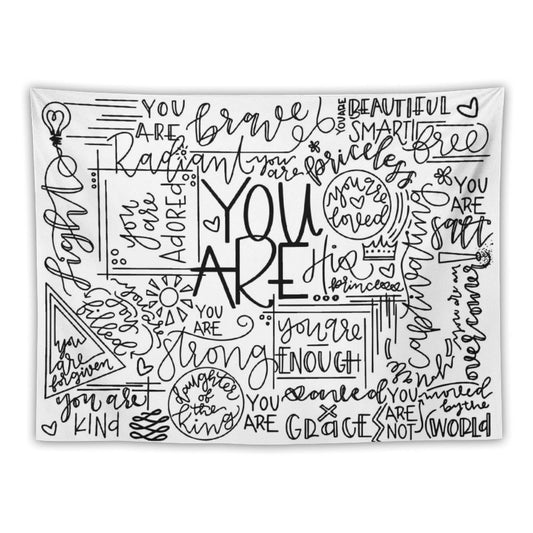 YOU
ARE
brave
YOU ARE
BEAUTIFUL
SMART
free
Radiant
you are
priceless
light
you
are
ADORED
YOU
ARE...
you're
loved
His
princess
captivating
YOU
ARE
salt
you are an
overcomer
Spirit
filled
YOU
ARE
strong
you are
ENOUGH
you
are
forgiven
you are
KIND
daughter
of the
King
YOU
ARE
saved
GRACE
new
YOU
ARE
NOT
moved
by the
WORLD